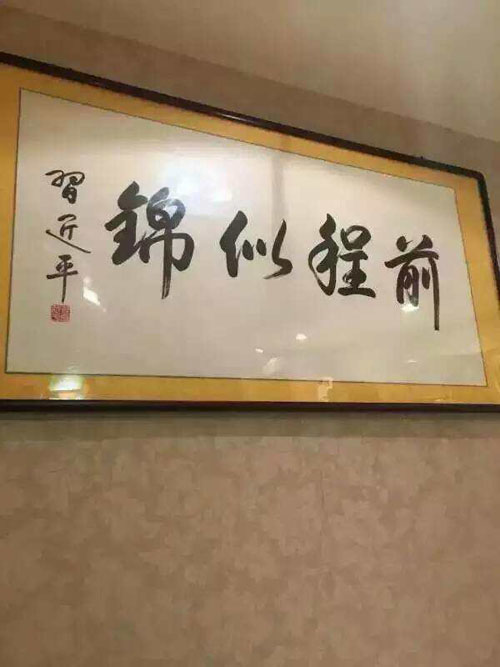 前程似錦
習近平